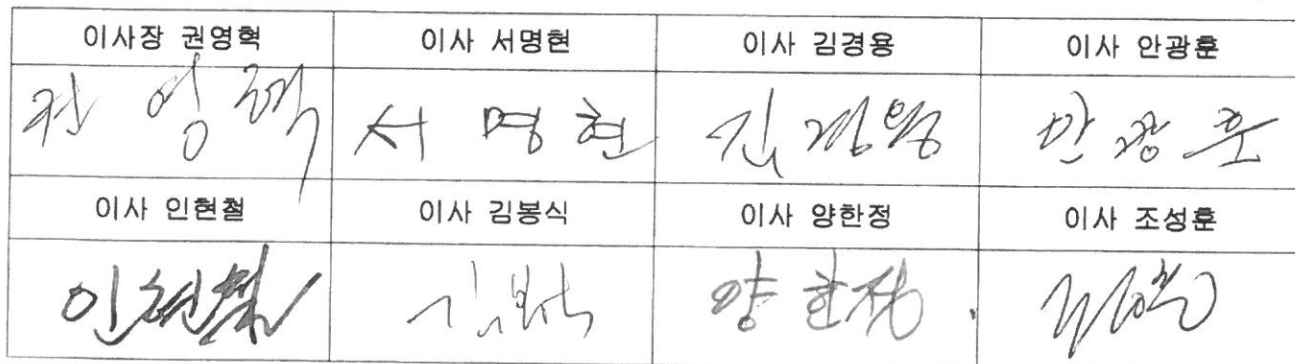 이사장 권영혁 이사 서명현 이사 김경용 이사 안광훈
권 영 혁 서 명 현 김 경 용 안 광 훈
이사 인현철 이사 김봉식 이사 양한정 이사 조성훈
인현철 김봉식 양한정